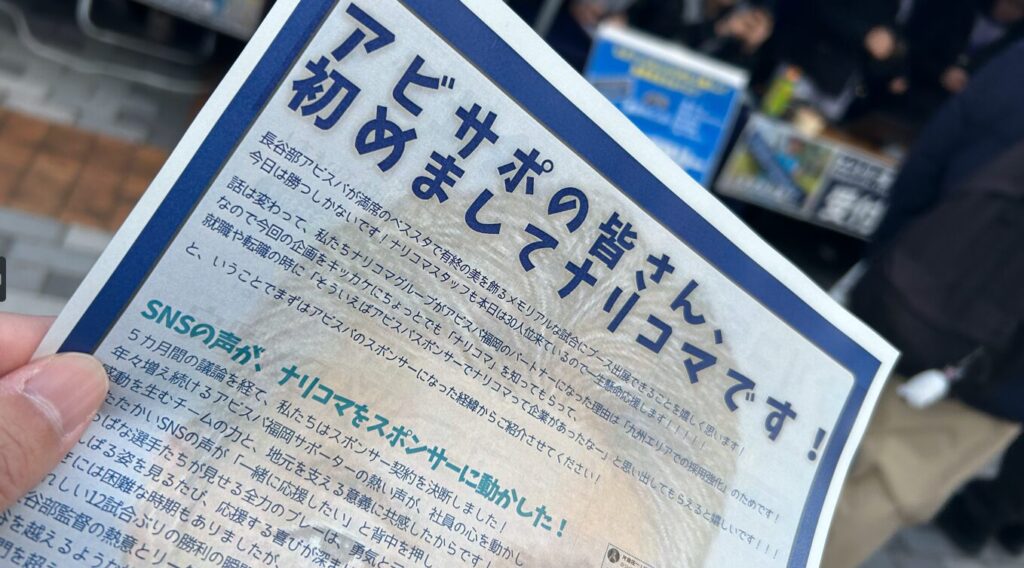 アビサポの皆さん、
初めましてナリコマです!
長谷部アビスパが満席のベススタで有終の美を飾るメモリアルな試合にブース出展できることを嬉しく思います!
今日は勝つしかないです!ナリコマスタッフも本日は30人位来ているので一生懸命応援します!!!!!
話は変わって、私たちナリコマグループがアビスパ福岡のパートナーになった理由は「九州エリアでの採用強化」のためです!
なので今回の企画をキッカケにちょっとでも「ナリコマ」を知ってもらって、
就職や転職の時に「そういえばアビスパスポンサーでナリコマって企業があったなー」と思い出してもらえると嬉しいです!!!
と、いうことでまずはアビスパのスポンサーになった経緯からご紹介させてください!
SNSの声が、ナリコマをスポンサーに動かした!
5カ月間の議論を経て、私たちはスポンサー契約を決断しました!
年々増え続けるアビスパ福岡サポーターの熱い声が、社員の心を動かし
感動を生むチームの力と、地元を支える意義に共感したからです!
たたかいSNSの声が「一緒に応援したい」と背中を押し
な選手たちが見せる全力のプレーは、勇気と
しばる姿を見るたび、応援する喜びが深ま
には困難な時期もありましたが、
しい12試合ぶりの勝利の瞬
谷部監督の熱意とリー
を越えるような
受付